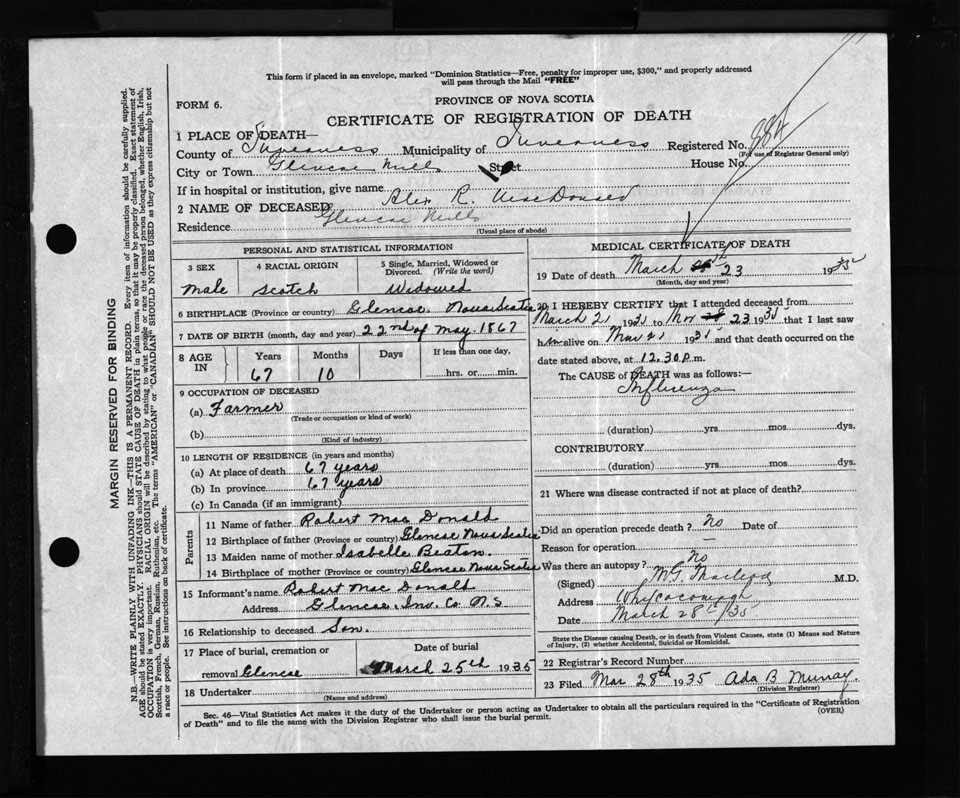 This form if placed in an envelope, marked "Dominion Statistics—Free, penalty for improper use, $300," and properly addressed
will pass through the Mail "FREE"
FORM 6.
PROVINCE OF NOVA SCOTIA
CERTIFICATE OF REGISTRATION OF DEATH
1 PLACE OF DEATH—
County of Inverness Municipality of Inverness Registered No. 884
(For use of Registrar General only)
City or Town Glencoe Mills Street House No.
If in hospital or institution, give name
2 NAME OF DECEASED Alex R. MacDonald
Residence Glencoe Mills
(Usual place of abode)
PERSONAL AND STATISTICAL INFORMATION
3 SEX 4 RACIAL ORIGIN 5 Single, Married, Widowed or Divorced. (Write the word)
male scotch Widowed
6 BIRTHPLACE (Province or country) Glencoe. Nova Scotia
7 DATE OF BIRTH (month, day and year) 22nd of may. 1867
8 AGE IN Years Months Days If less than one day,
67 10 hrs. or min.
9 OCCUPATION OF DECEASED
(a) Farmer
(Trade or occupation or kind of work)
(b)
(Kind of industry)
10 LENGTH OF RESIDENCE (in years and months)
(a) At place of death 67 years
(b) In province 67 years
(c) In Canada (if an immigrant)
Parents
11 Name of father Robert Mac Donald
12 Birthplace of father (Province or country) Glencoe Nova Scotia
13 Maiden name of mother Isabelle Beaton.
14 Birthplace of mother (Province or country) Glencoe Nova Scotia
15 Informant's name Robert Mac Donald
Address Glencoe. Inv. Co N.S
16 Relationship to deceased Son.
17 Place of burial, cremation or Date of burial
removal Glencoe March 25th 1935
18 Undertaker
(Name and address)
MEDICAL CERTIFICATE OF DEATH
19 Date of death March 23 1935
(Month, day and year)
20 I HEREBY CERTIFY that I attended deceased from
March 21 1935 to Mar 23 1935 that I last saw
him alive on Mar 21 1935 and that death occurred on the
date stated above, at 12.30 p.m.
The CAUSE of DEATH was as follows:—
Influenza
(duration) yrs mos dys.
CONTRIBUTORY
(duration) yrs mos dys.
21 Where was disease contracted if not at place of death?
Did an operation precede death? No Date of
Reason for operation —
Was there an autopsy? No
(Signed) M.G. Macleod M.D.
Address Whycocomagh
Date March 28th/35
State the Disease causing Death, or in death from Violent Causes, state (1) Means and Nature
of Injury, (2) whether Accidental, Suicidal or Homicidal.
22 Registrar's Record Number
23 Filed Mar 28th 1935 Ada B Murray.
(Division Registrar)
Sec. 46—Vital Statistics Act makes it the duty of the Undertaker or person acting as Undertaker to obtain all the particulars required in the "Certificate of Registration
of Death" and to file the same with the Division Registrar who shall issue the burial permit.
(OVER)
MARGIN RESERVED FOR BINDING
N.B.—WRITE PLAINLY WITH UNFADING INK—THIS IS A PERMANENT RECORD. Every item of information should be carefully supplied.
AGE should be stated EXACTLY. PHYSICIANS should STATE CAUSE OF DEATH in plain terms, so that it may be properly classified. Exact statement of
OCCUPATION is very important. RACIAL ORIGIN will be described by stating to what people or race the deceased person belonged, whether English, Irish,
Scottish, French, German, Russian, Ruthenian, etc. The terms "AMERICAN" or "CANADIAN" SHOULD NOT BE USED as they express citizenship but not
a race or people. See instructions on back of certificate.